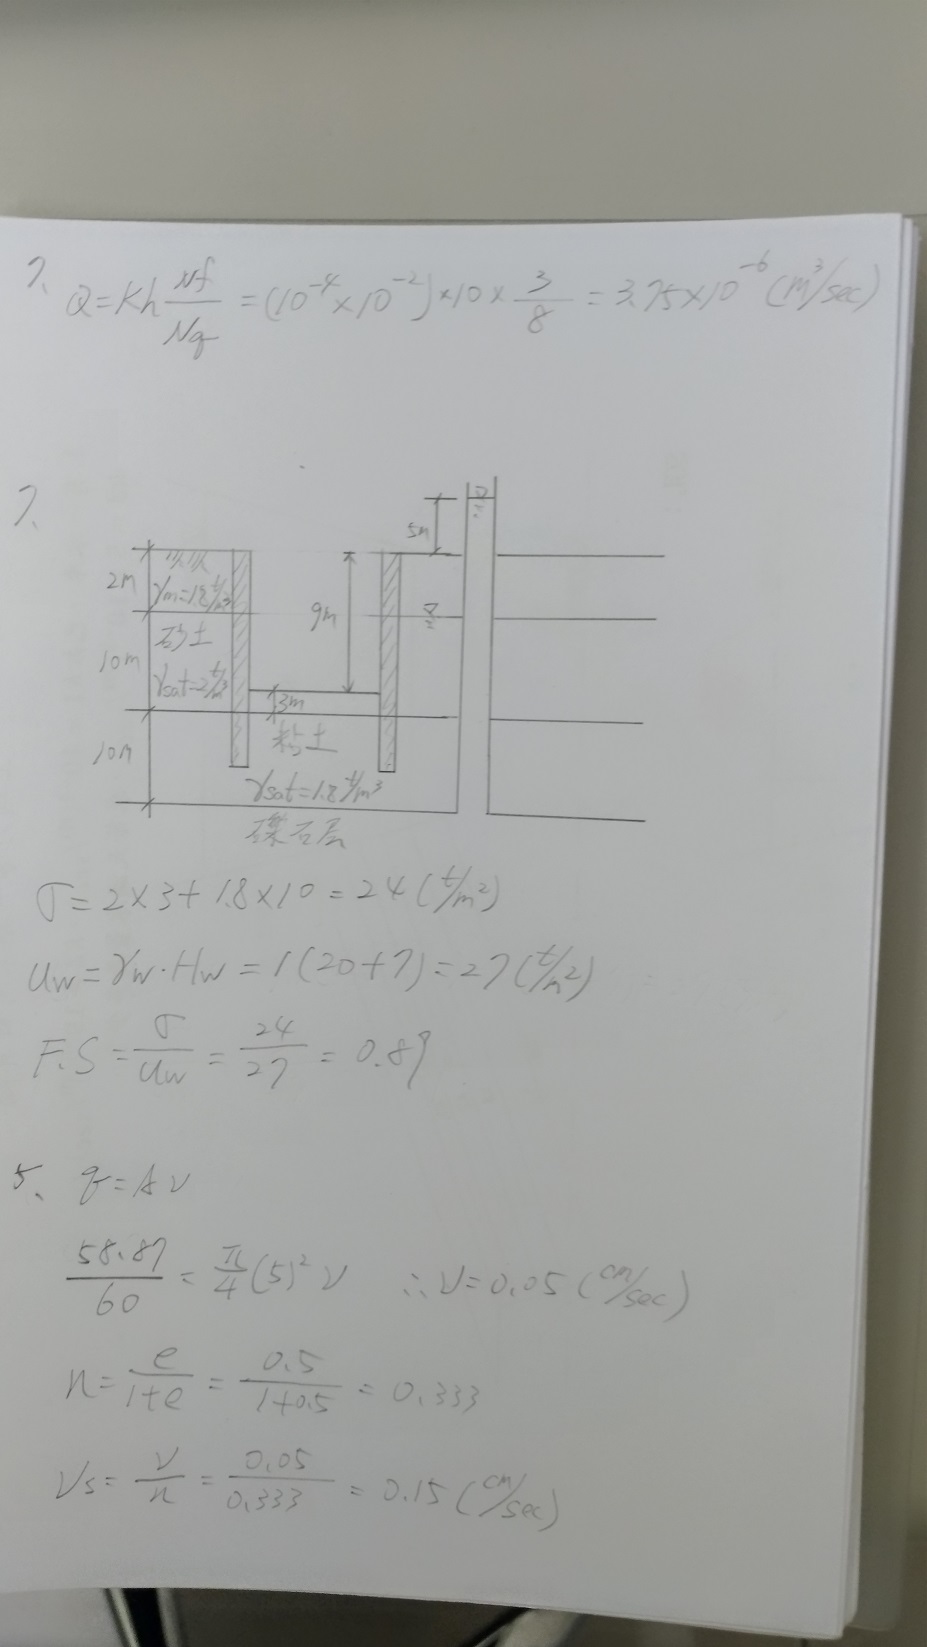 7、 Q=Kh Nf/Nq =(10⁻⁴×10⁻²)×10×3/8=3.75×10⁻⁶(m³/sec)
7、
5m
2m
γm=1.8t/m³
9m
砂土
10m
γsat=2t/m³
3m
粘土
10m
γsat=1.8t/m³
礫石层
σ=2×3+1.8×10=24(t/m²)
uw=γw·Hw=1(20+7)=27(t/m²)
F.S=σ/uw=24/27=0.89
5、 q=Av
58.87/60=π/4(5)²v ∴v=0.05(cm/sec)
n=e/1+e=0.5/1+0.5=0.333
Vs=v/n=0.05/0.333=0.15(cm/sec)